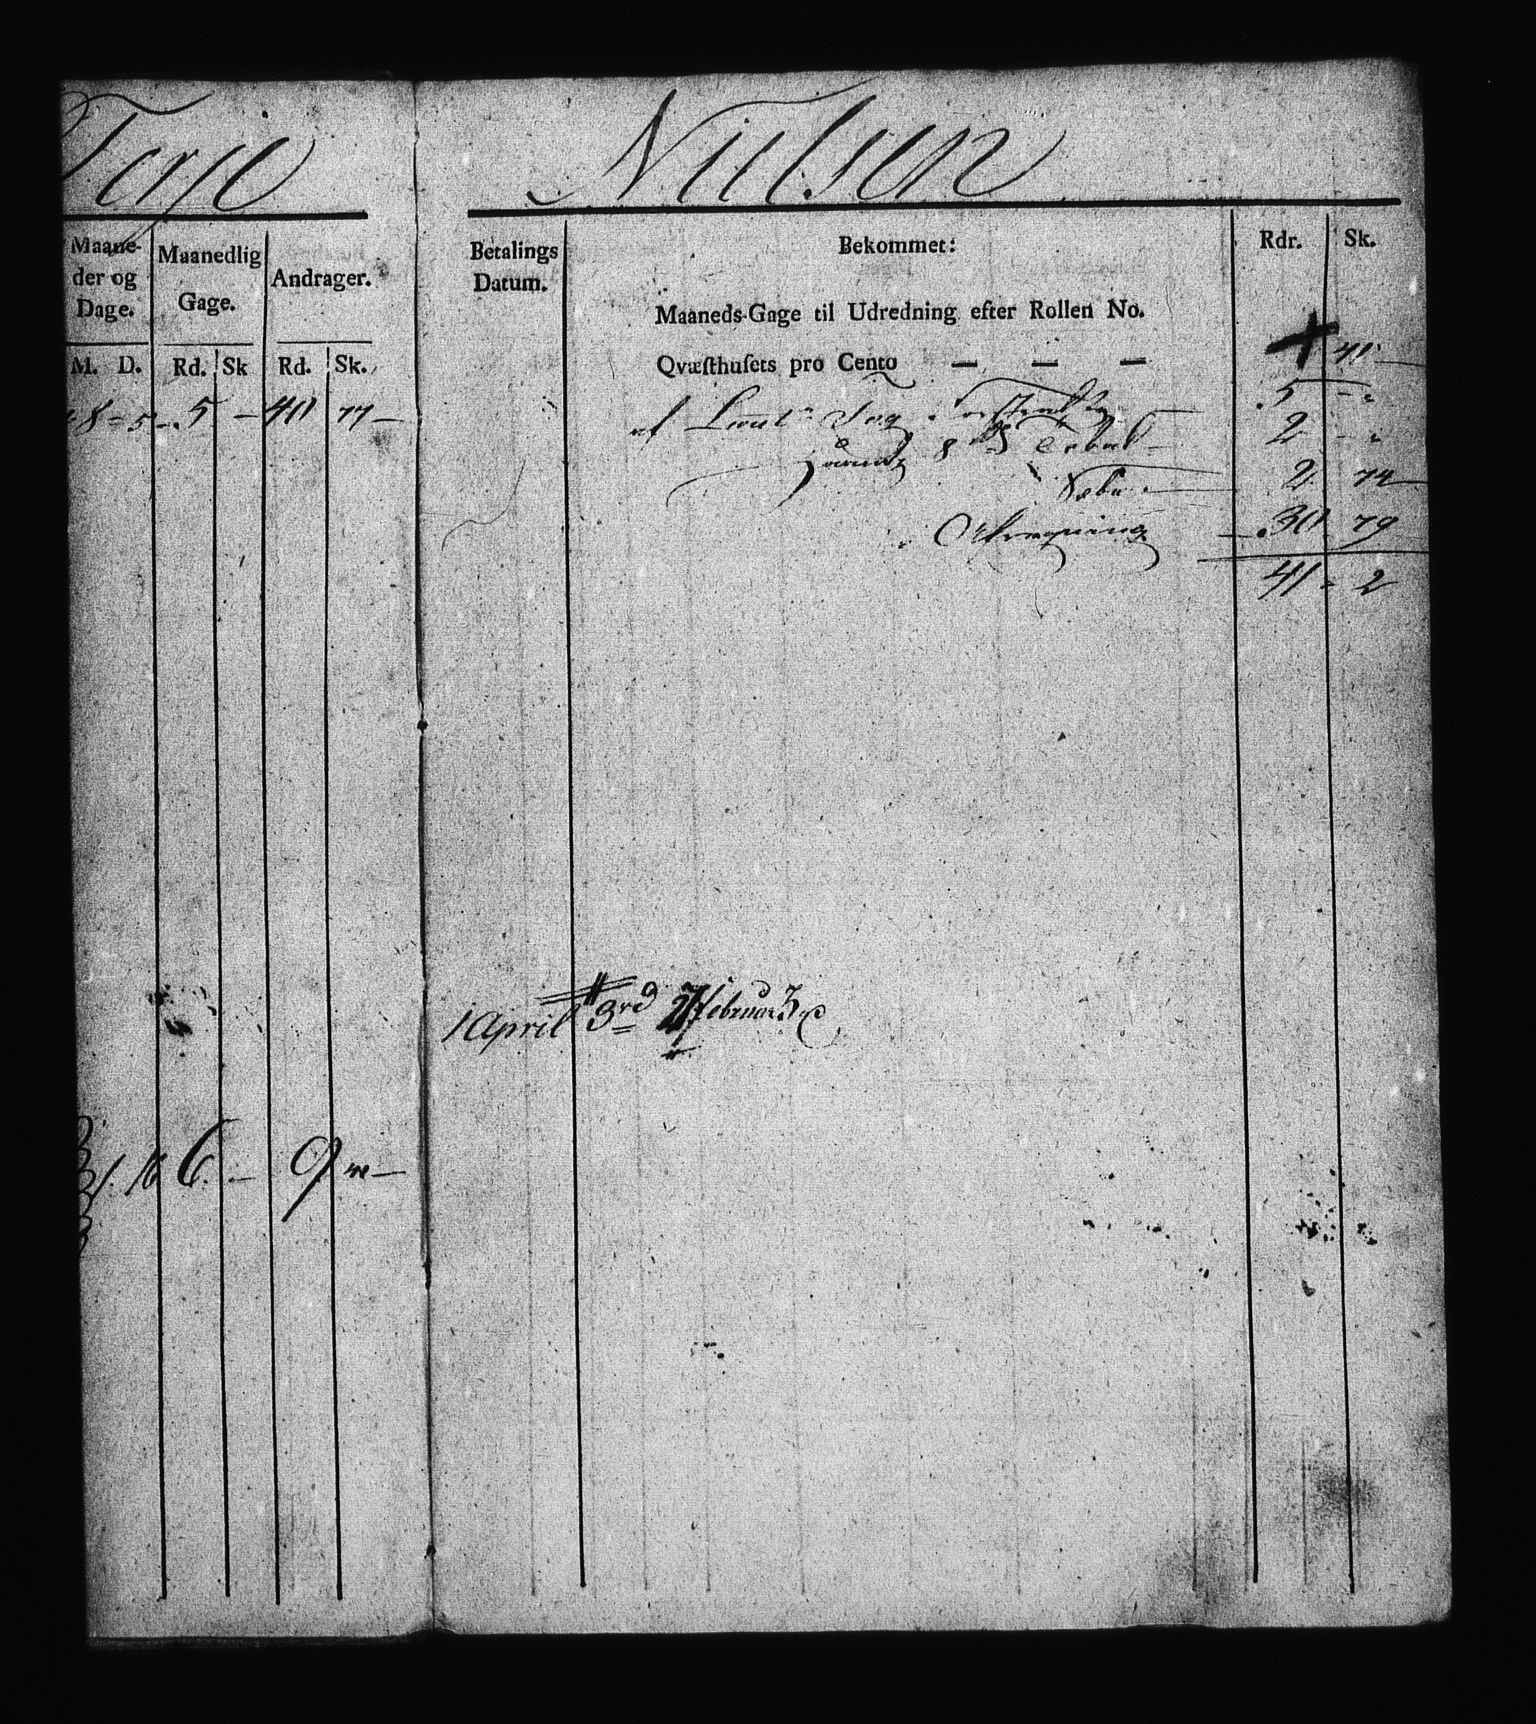 Terje Nielsen
Maane-
der og
Dage.
M. D.
Maanedlig
Gage.
Rd. Sk
Andrager.
Rd. Sk.
8 = 5 - 5 - 40 77 -
Betalings
Datum.
Bekommet:
Rdr. Sk.
Maaneds-Gage til Udredning efter Rollen No.
Qvæsthusets pro Cento — — — 41
af 5 - "
2 - "
2 74
30 79
41 - 2
1 April 3 rd 27 Februar 3 rd
1. 16 6. - 9